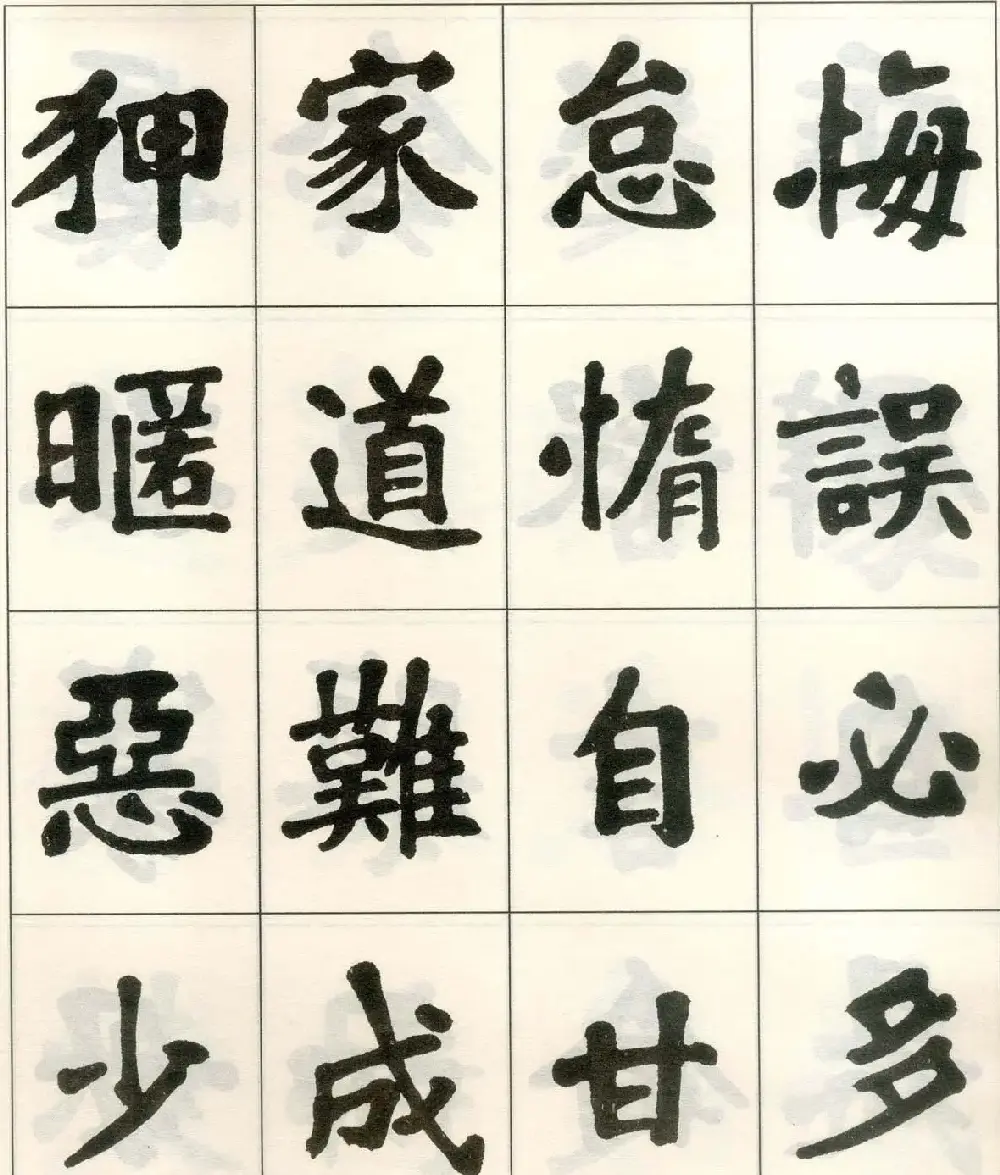 悔誤必多
怠惰自甘
家道難成
狎暱惡少